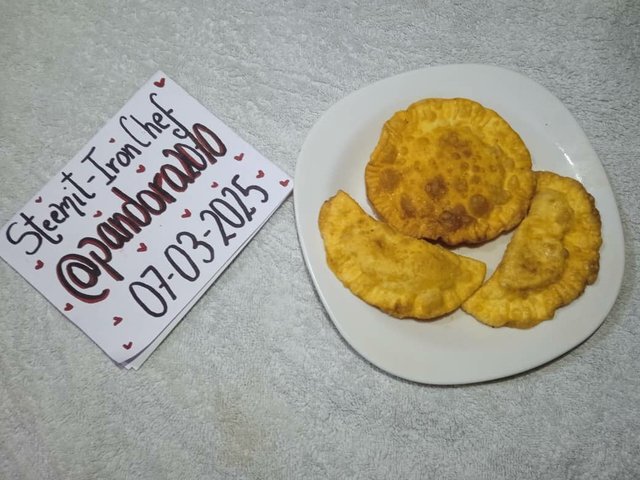 Steemit-Iron Chef
@pandora2010
07-03-2025